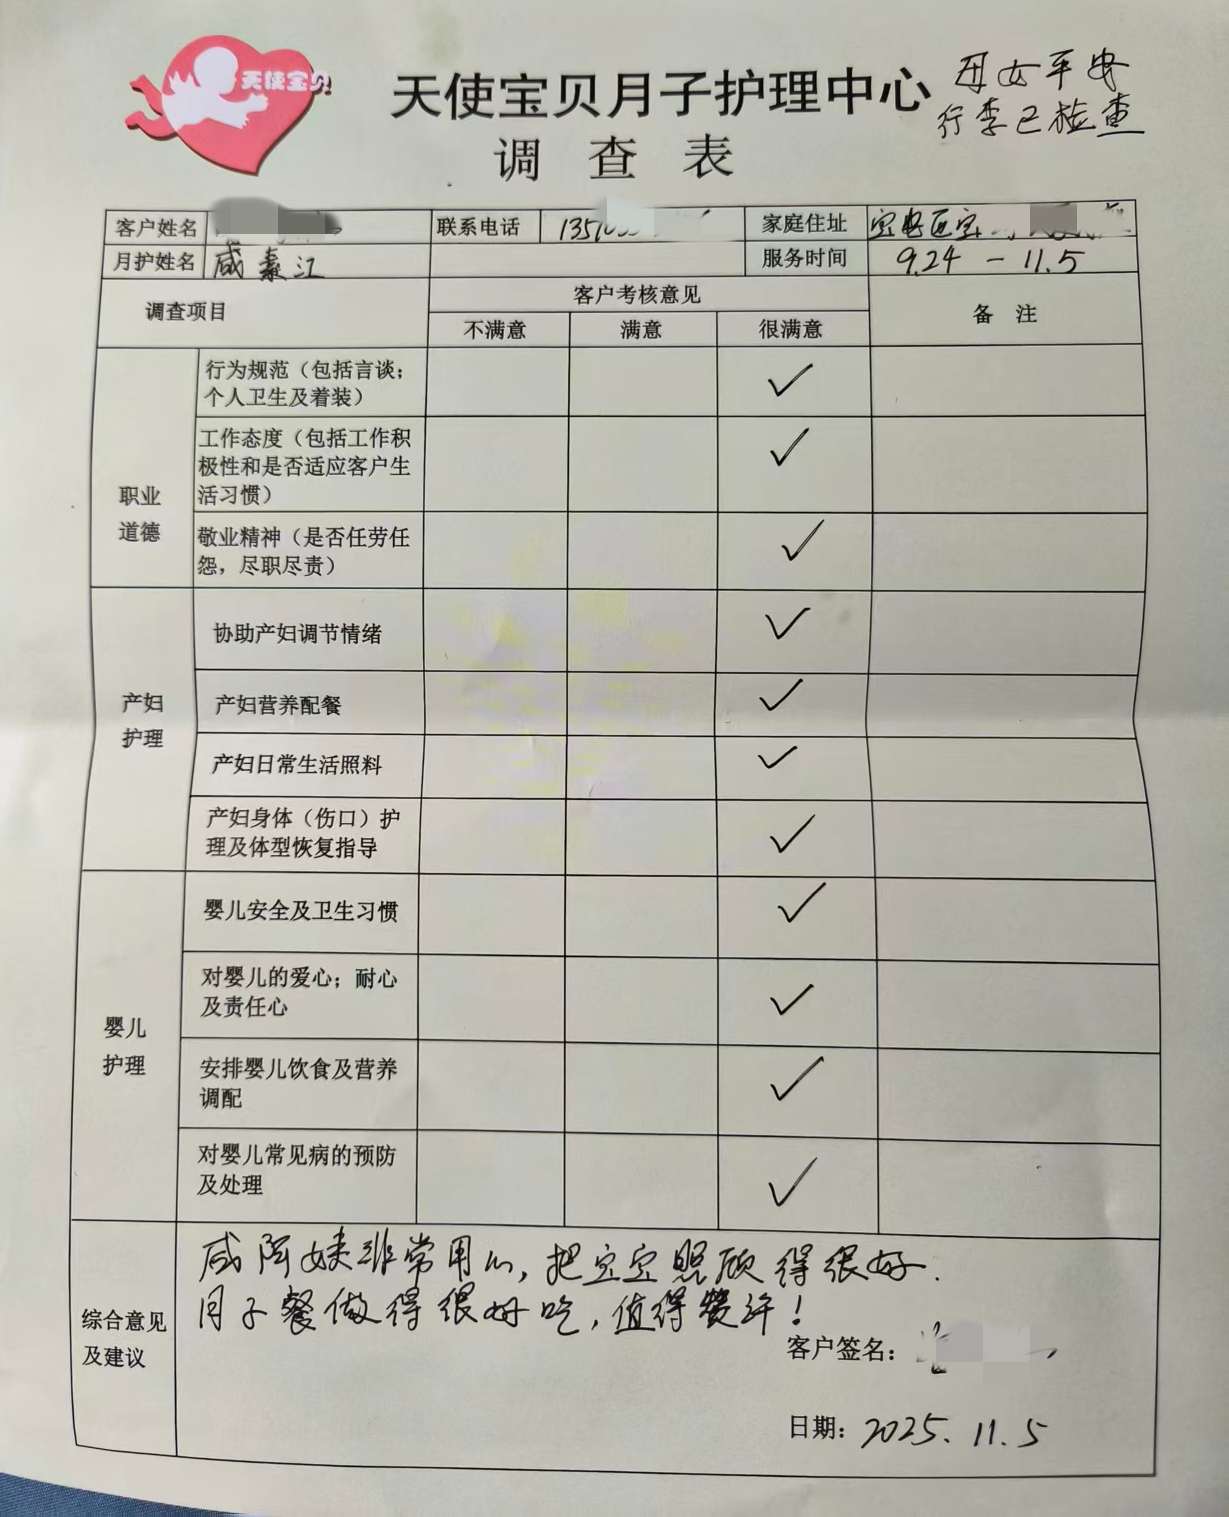 天使宝贝
天使宝贝月子护理中心
母女平安
行李已检查
调 查 表
客户姓名 联系电话 家庭住址 宝安区宝
月护姓名 咸 江 服务时间 9.24 - 11.5
调查项目 客户考核意见 备 注
不满意 满意 很满意
职业
道德
行为规范（包括言谈；
个人卫生及着装） ✓
工作态度（包括工作积
极性和是否适应客户生
活习惯） ✓
敬业精神（是否任劳任
怨，尽职尽责） ✓
产妇
护理
协助产妇调节情绪 ✓
产妇营养配餐 ✓
产妇日常生活照料 ✓
产妇身体（伤口）护
理及体型恢复指导 ✓
婴儿
护理
婴儿安全及卫生习惯 ✓
对婴儿的爱心；耐心
及责任心 ✓
安排婴儿饮食及营养
调配 ✓
对婴儿常见病的预防
及处理 ✓
综合意见
及建议
咸阿姨非常用心，把宝宝照顾得很好.
月子餐做得很好吃，值得赞许！
客户签名：
日期：2025.11.5